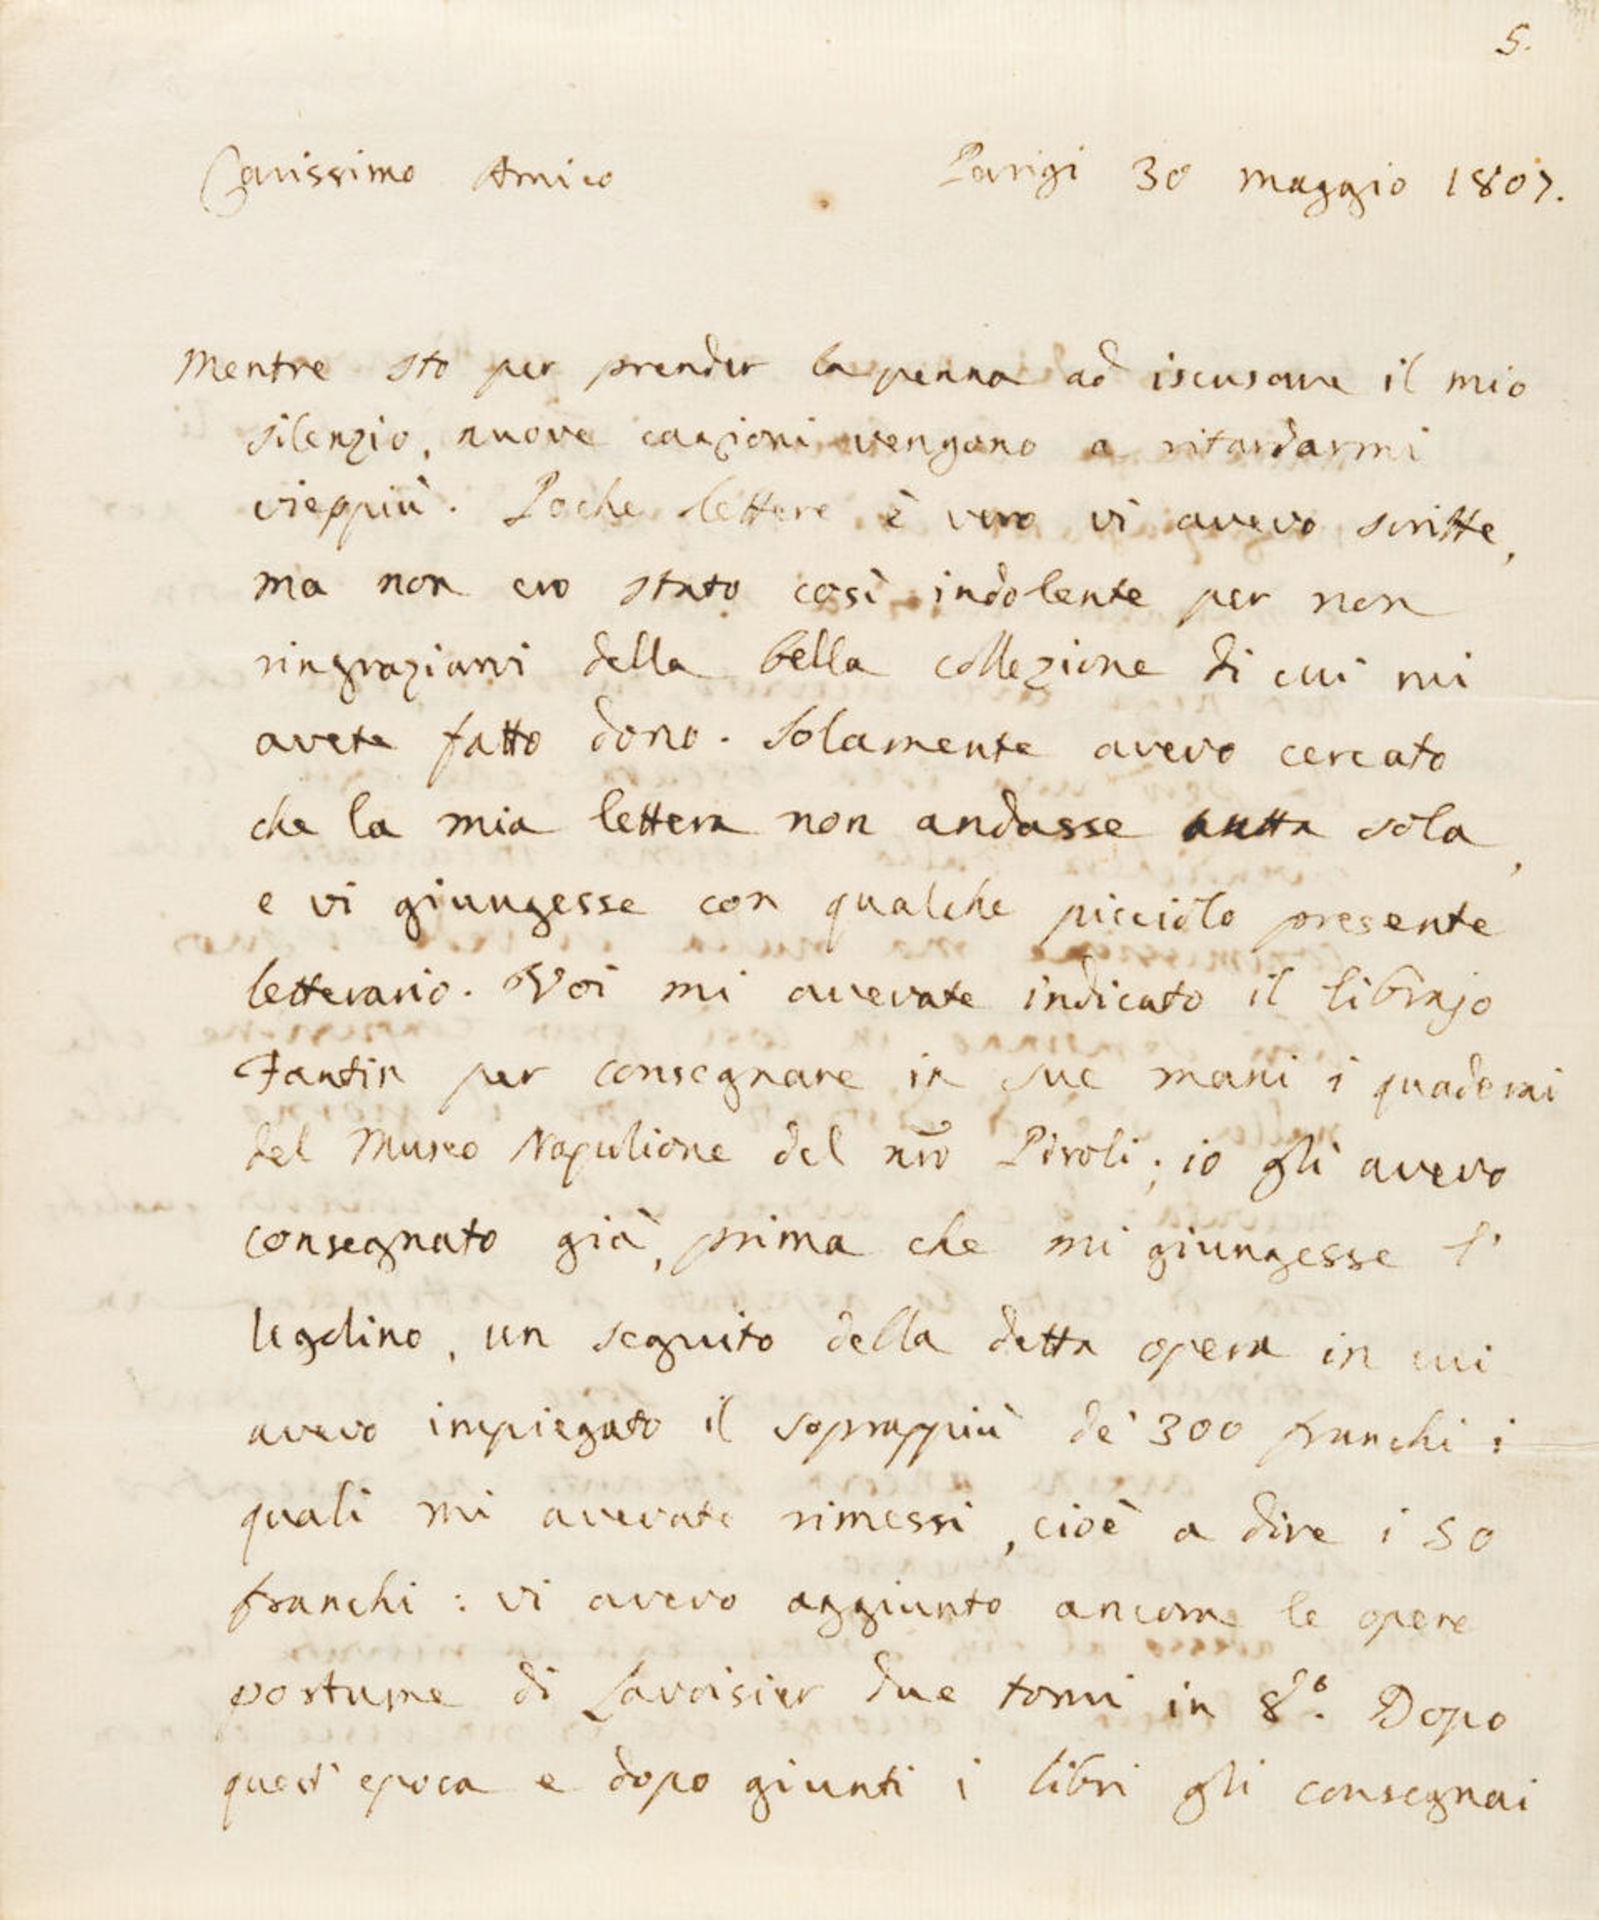 5.
Carissimo Amico Parigi 30 maggio 1807.
Mentre sto per prender la penna ad iscusarne il mio
silenzio, nuove cagioni vengono a ritardarmi
vieppiù. Poche lettere è vero vi avevo scritte,
ma non ero stato così indolente per non
ringraziarvi della bella collezione di cui mi
avete fatto dono. Solamente avevo cercato
che la mia lettera non andasse tutta sola,
e vi giungesse con qualche picciolo presente
letterario. Voi mi avevate indicato il librajo
Fantin per consegnare in sue mani i quaderni
del Museo Napulione del nro Piroli; io gli avevo
consegnato già, prima che mi giungesse l'
Ugolino, un seguito della detta opera in cui
avevo impiegato il soprappiù de' 300 franchi i
quali mi avevate rimessi, cioè a dire i 50
franchi: vi avevo aggiunto ancora le opere
postume di Lavoisier due tomi in 8.º Dopo
quest' epoca e dopo giunti i libri gli consegnai